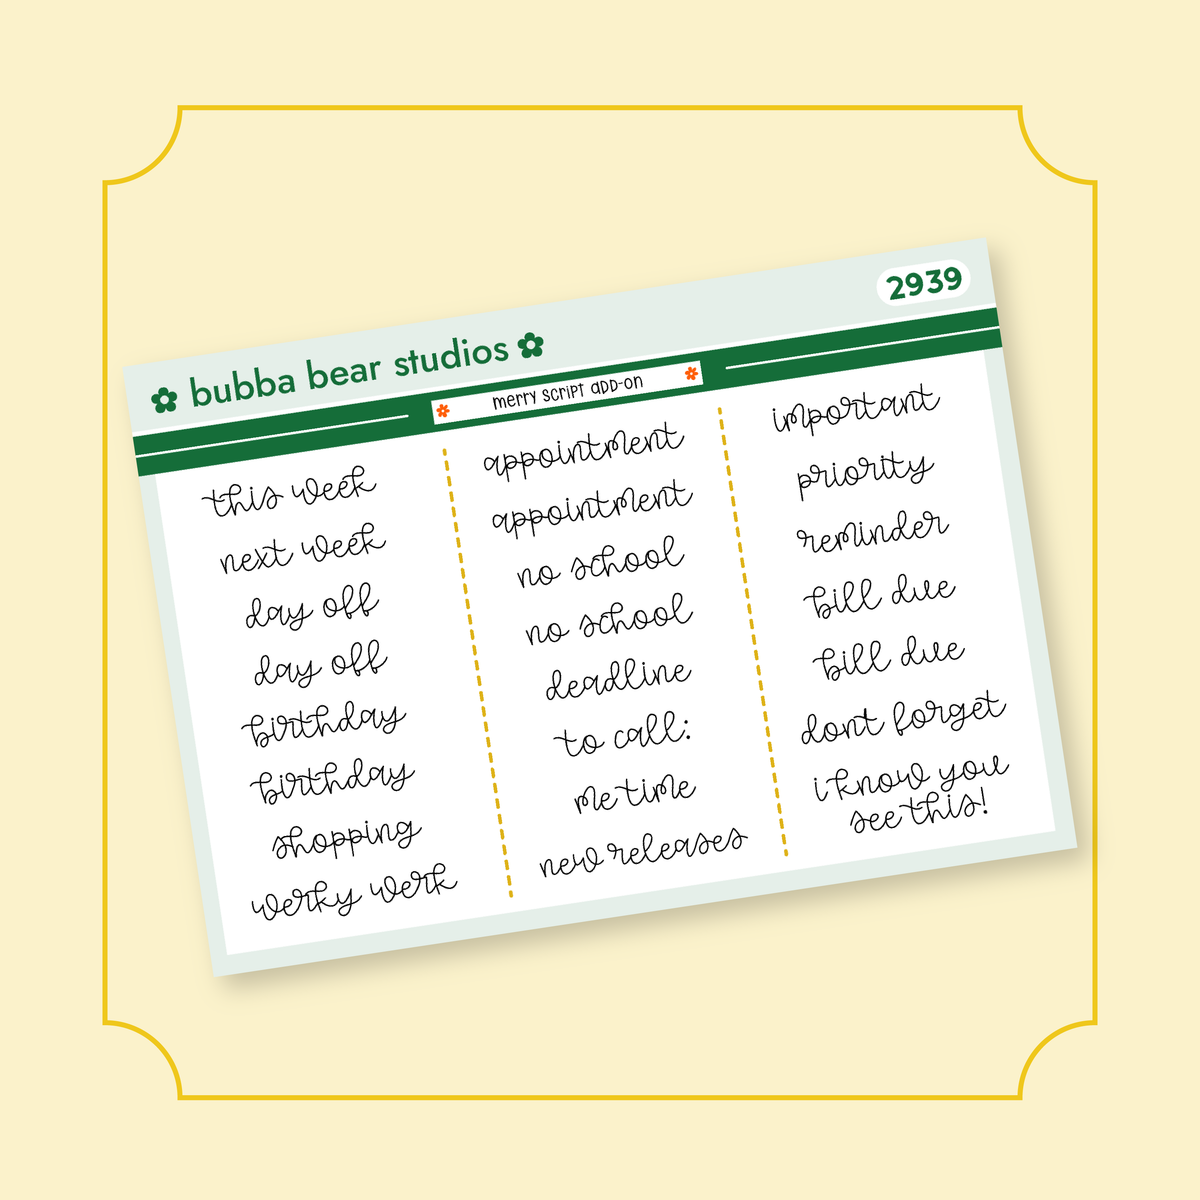 2939
bubba bear studios
merry script add-on
this week
next week
day off
day off
birthday
birthday
shopping
werky werk
appointment
appointment
no school
no school
deadline
to call:
me time
new releases
important
priority
reminder
bill due
bill due
dont forget
i know you
see this!